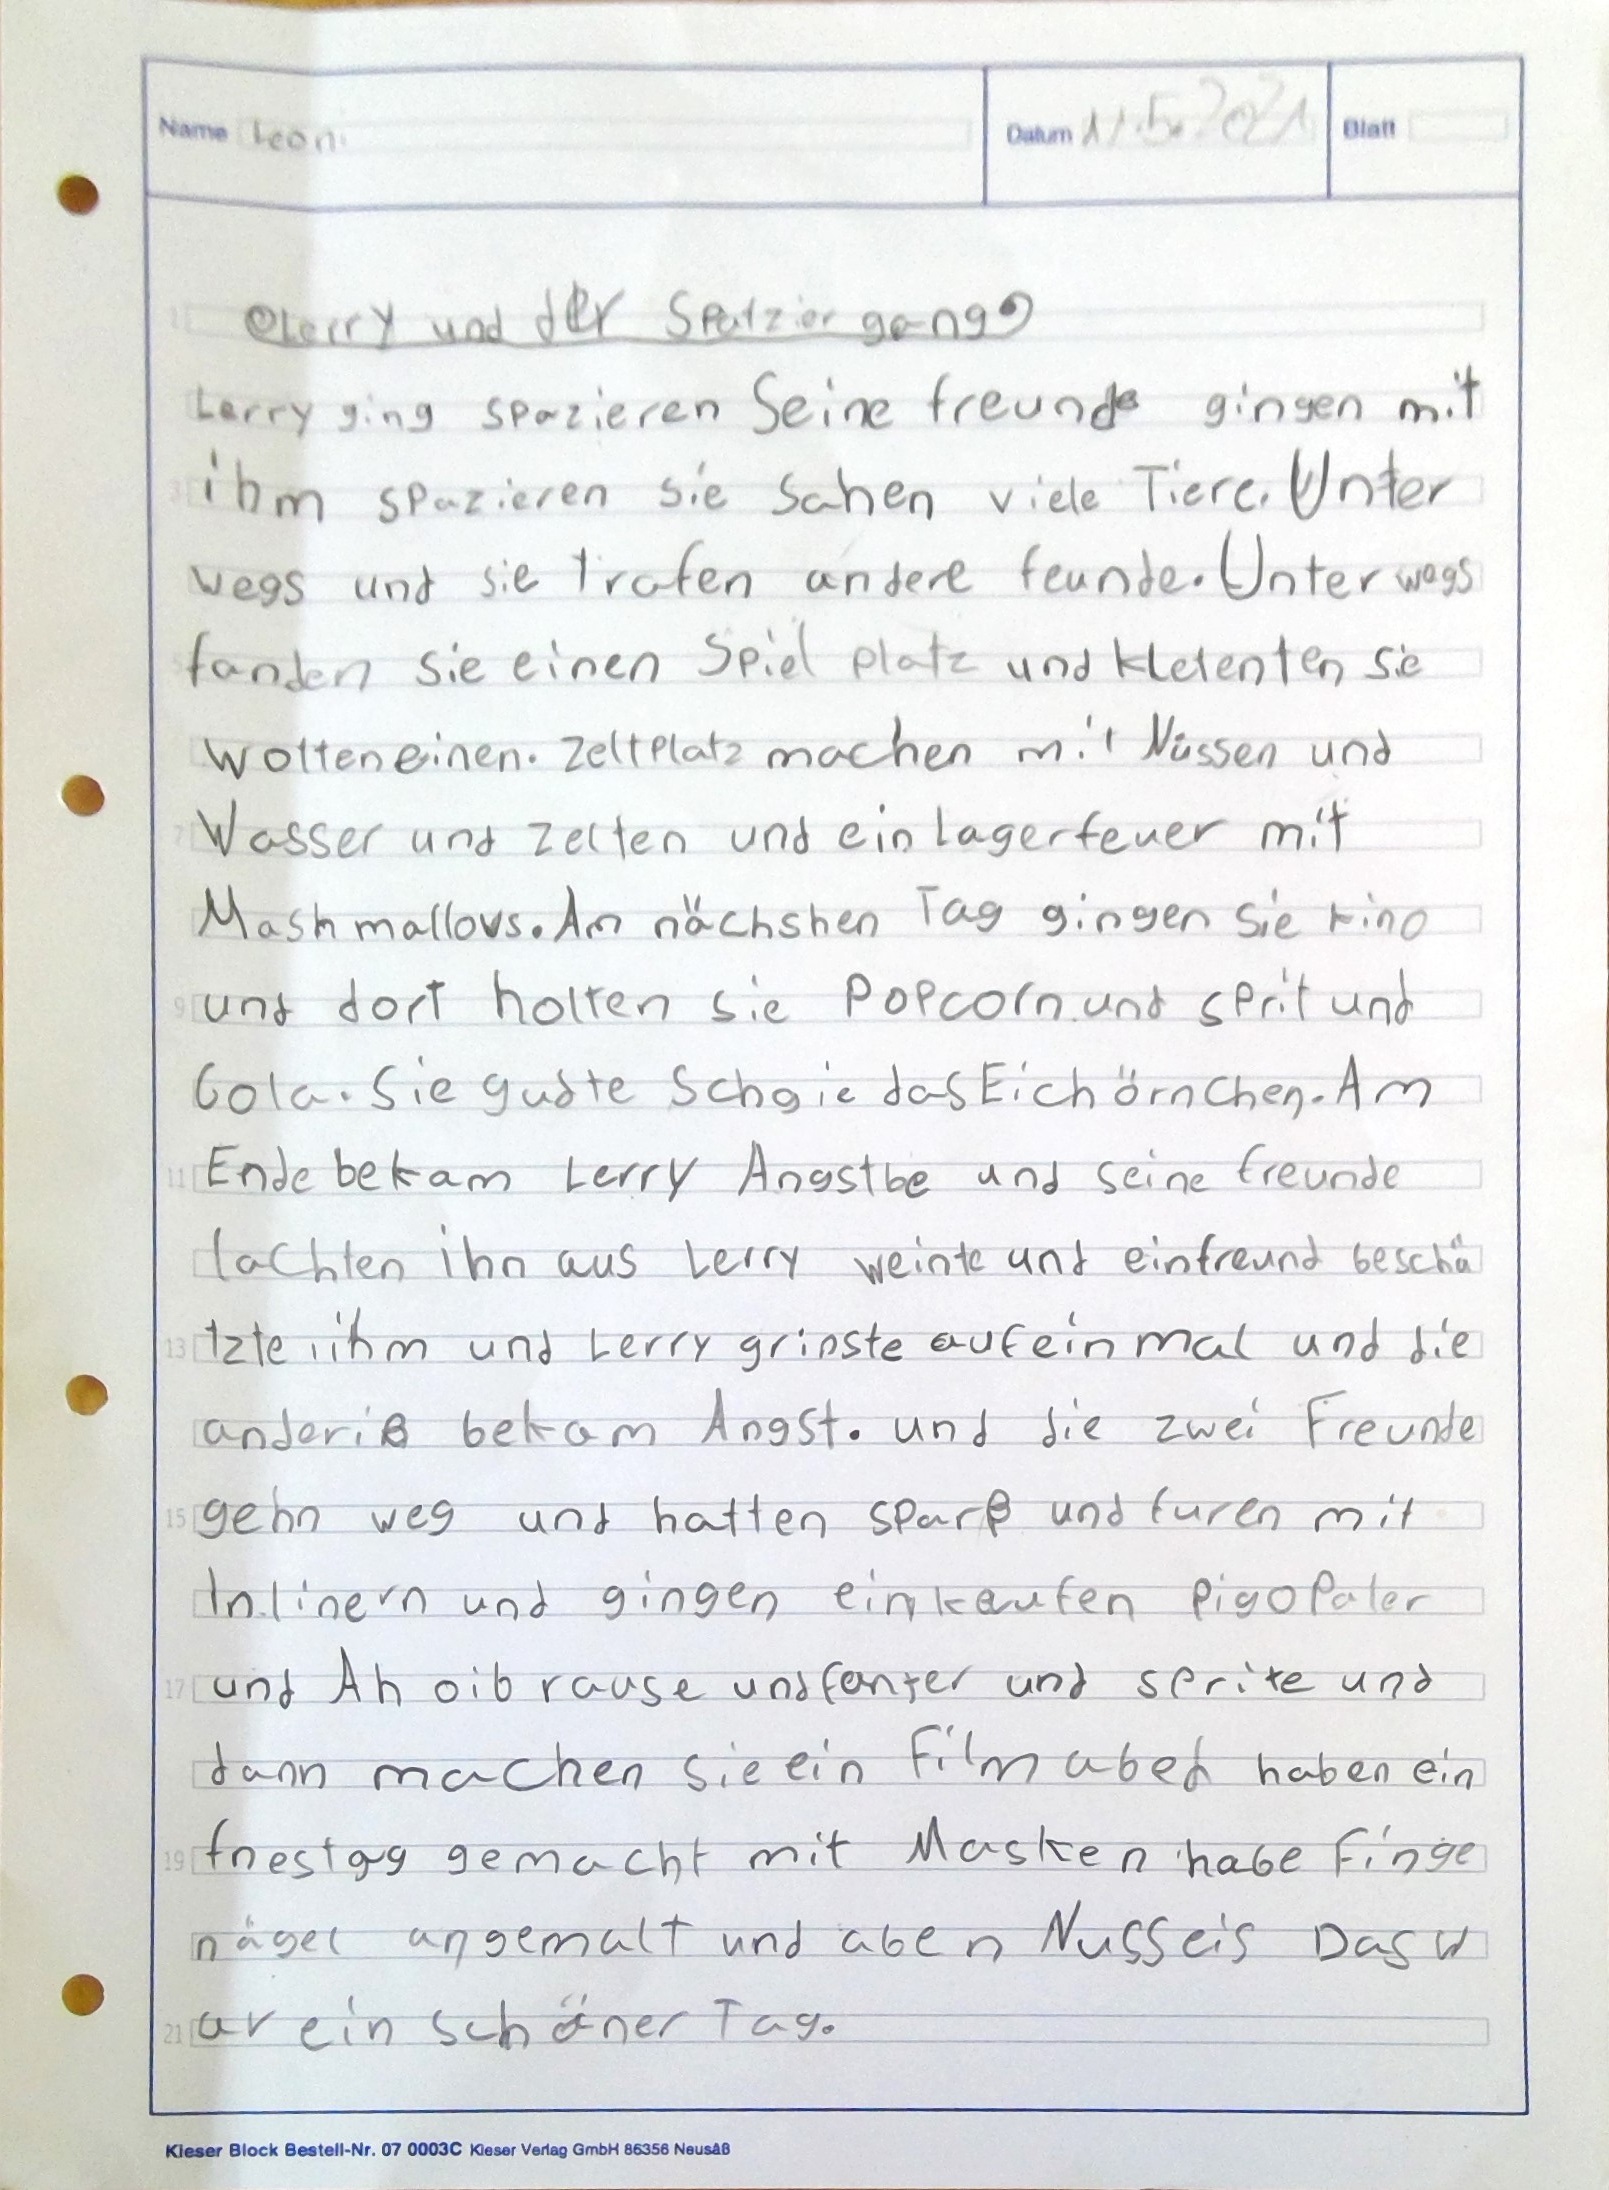 Name Leon
Datum 11.5.2021
Blatt
Lerry und der Spatziergang
Lerry ging spazieren Seine freunde gingen mit
3 ihm spazieren sie sahen viele Tiere. Unter
wegs und sie trafen andere feunde. Unter wegs
5 fanden sie einen Spiel platz und kletenten sie
wolten einen. zeltplatz machen mit Nüssen und
7 Wasser und zelten und ein lagerfeuer mit
Mash mallows. Am nächshen Tag gingen sie kino
9 und dort holten sie Popcorn und sprit und
Cola. Sie gudte Schgie das Eichörnchen. Am
11 Ende bekam Lerry Angstbe und seine freunde
lachten ihn aus Lerry weinte und einfreund beschü
13 tzte ihm und Lerry grinste aufein mal und die
anderiß bekam Angst. und die zwei Freunde
15 gehn weg und hatten sparß und furen mit
Inlinern und gingen einkaufen PigoPaler
17 und Ah oib rause und fanter und sprite und
dann machen sie ein Film abed haben ein
19 fnestag gemacht mit Masken habe Finge
nägel angemalt und aben Nusseis Das w
21 ar ein schöner Tag.
Kieser Block Bestell-Nr. 07 0003C Kieser Verlag GmbH 86356 Neusäß